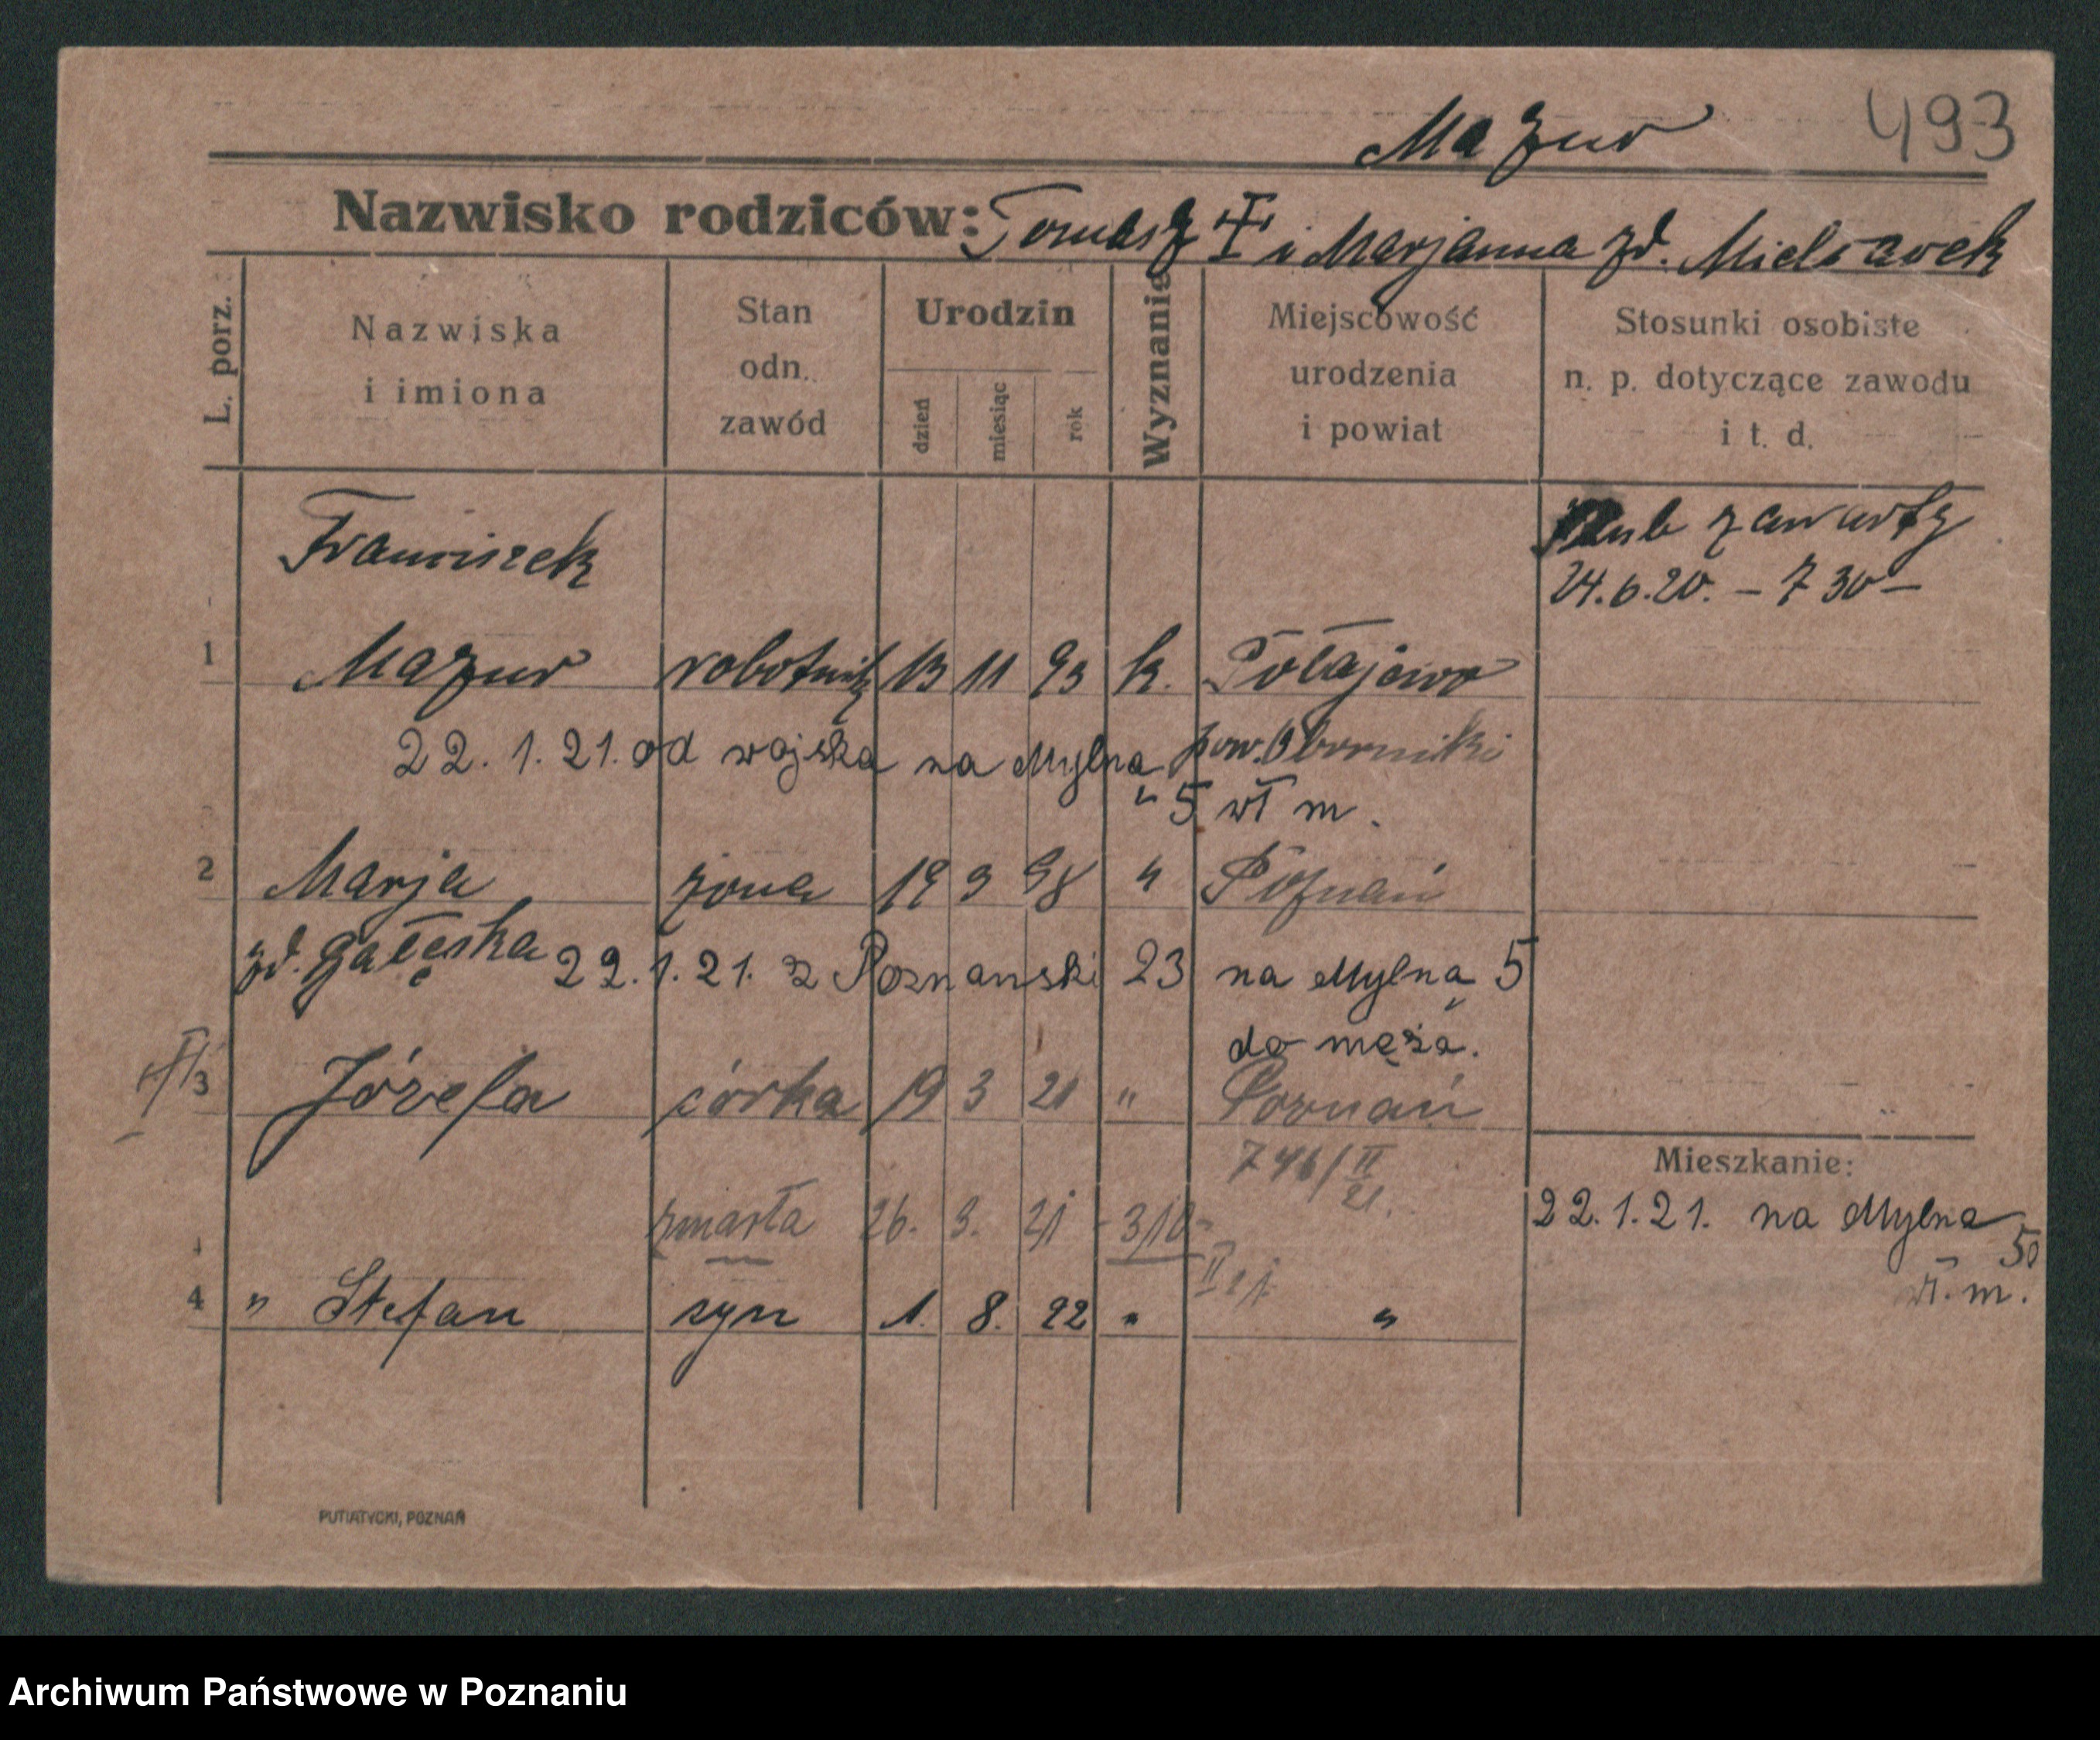 Mazur 493
Nazwisko rodziców: Tomasz i Marjanna zd.
L. porz.
Nazwiska
i imiona
Stan
odn.
zawód
Urodzin
dzień
miesiąc
rok
Wyznanie
Miejscowość
urodzenia
i powiat
Stosunki osobiste
n. p. dotyczące zawodu
i t. d.
Franciszek
Ślub zawarty
24.6.20. – 730 –
1 Mazur robotnik 13 11 93 k. Połajewo
pow. Oborniki
22. 1. 21. od wojska na Mylna
" 5 wł m.
2 Marja żona 19 3 98 " Poznań
zd. Gałęska 22. 1. 21. z Poznanski 23 na Mylna 5
do męża.
3 Józefa córka 19 3 21 " Poznań
746/II
21.
zmarła 26. 3. 21 - 310 -
II 21
4 " Stefan syn 1. 8. 22 " "
Mieszkanie:
22. 1. 21. na Mylna
5
wł. m.
PUTIATYCKI, POZNAŃ
Archiwum Państwowe w Poznaniu